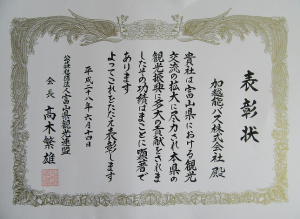 表彰状
加越能バス株式会社 殿
貴社は富山県における観光
交流の拡大に尽力され本県の
観光振興に多大の貢献をされま
したその功績はまことに顕著で
あります
よってこれをたたえ表彰します
平成二十八年六月十四日
公益社団法人富山県観光連盟
会長 高木繁雄